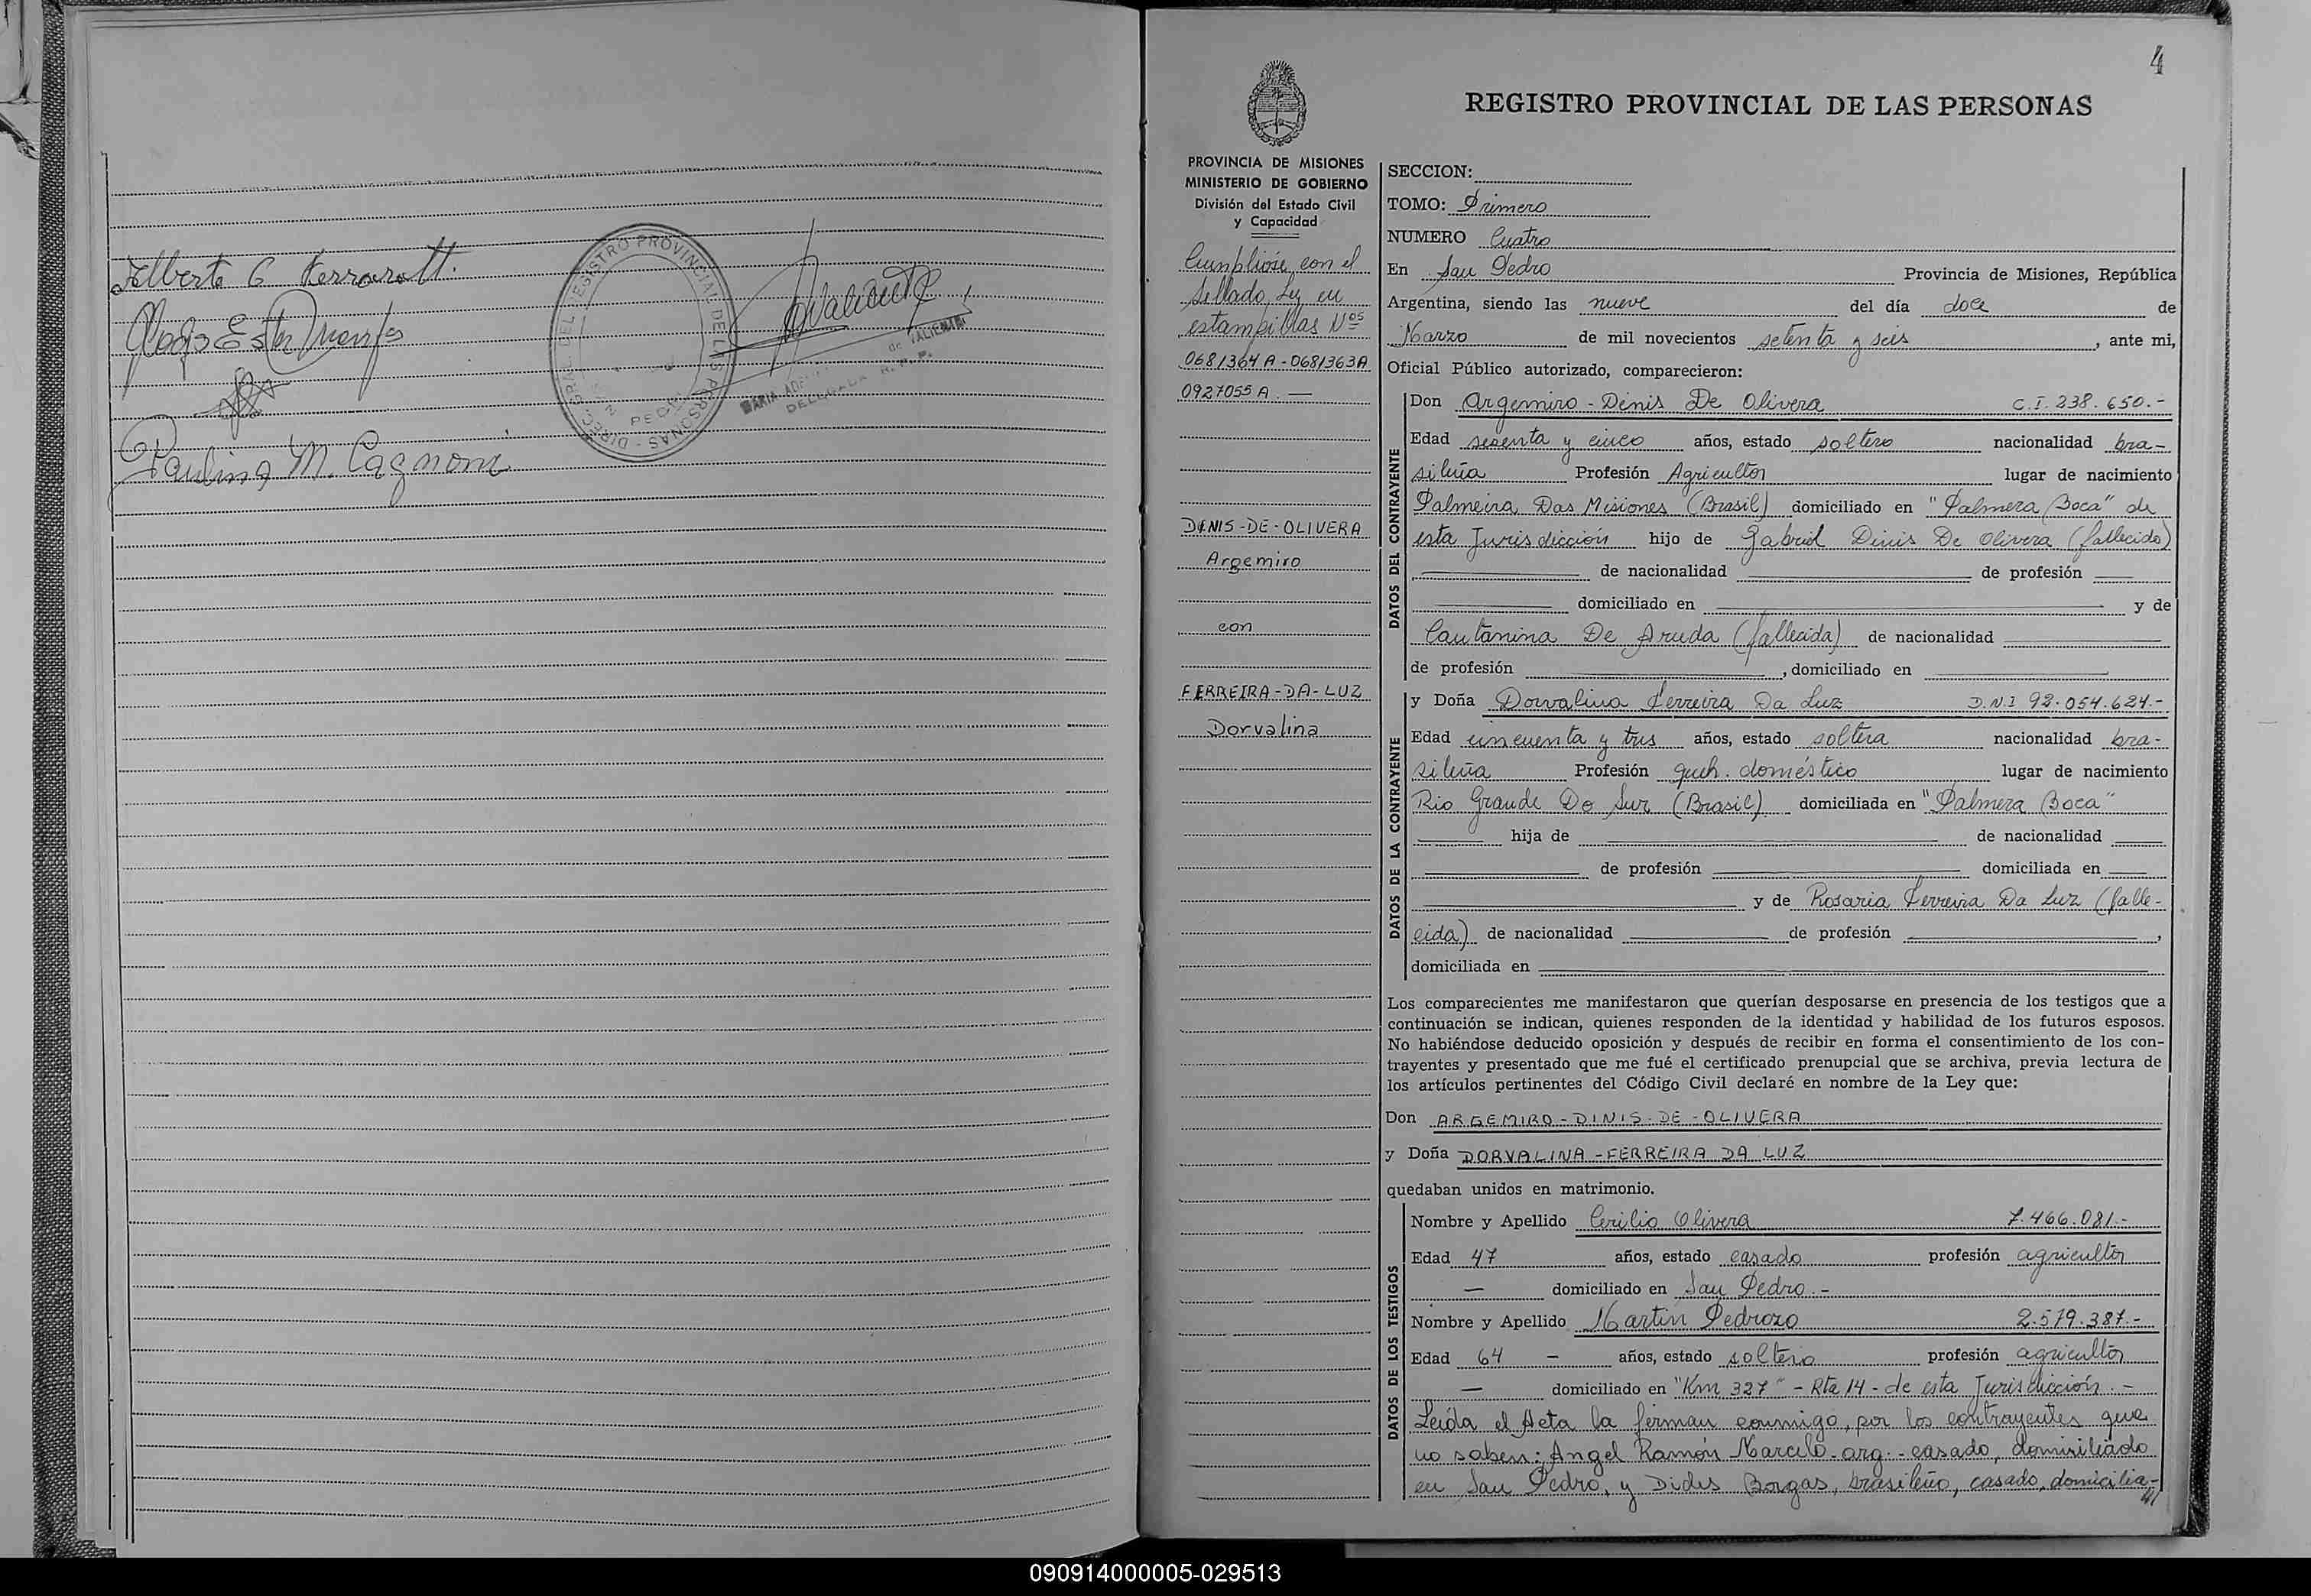 Alberto G Ferrarott.
Gladys Ester
Paulina M. Cagnoni
DIREC. GRAL. DEL REGISTRO PROVINCIAL DE LAS PERSONAS
PEDRO
MARIA ADE de VALIENTE
DELEGADA R. P. P.
4
REGISTRO PROVINCIAL DE LAS PERSONAS
PROVINCIA DE MISIONES
MINISTERIO DE GOBIERNO
División del Estado Civil
y Capacidad
Cumplióse con el
Sellado Ley en
estampillas Nos
0681364 A - 0681363A
0927055 A. —
DENIS-DE-OLIVERA
Argemiro
con
FERREIRA-DA-LUZ
Dorvalina
SECCION:
TOMO: Primero
NUMERO Cuatro
En San Pedro Provincia de Misiones, República
Argentina, siendo las nueve del día doce de
Marzo de mil novecientos setenta y seis, ante mi,
Oficial Público autorizado, comparecieron:
DATOS DEL CONTRAYENTE
Don Argemiro - Dinis De Olivera C.I. 238.650.-
Edad sesenta y cinco años, estado soltero nacionalidad bra-
sileña Profesión Agricultor lugar de nacimiento
Palmeira Das Misiones (Brasil) domiciliado en "Palmera Boca" de
esta Jurisdicción hijo de Gabriel Dinis De Olivera (fallecido)
de nacionalidad de profesión
domiciliado en y de
Cautanina De Aruda (fallecida) de nacionalidad
de profesión , domiciliado en
DATOS DE LA CONTRAYENTE
y Doña Dorvalina Ferreira Da Luz D.N.I 92.054.624.-
Edad cincuenta y tres años, estado soltera nacionalidad bra-
sileña Profesión queh. doméstico lugar de nacimiento
Rio Grande Do Sur (Brasil) domiciliada en "Palmera Boca"
hija de de nacionalidad
de profesión domiciliada en
y de Rosaria Ferreira Da Luz (falle-
cida) de nacionalidad de profesión ,
domiciliada en
Los comparecientes me manifestaron que querían desposarse en presencia de los testigos que a
continuación se indican, quienes responden de la identidad y habilidad de los futuros esposos.
No habiéndose deducido oposición y después de recibir en forma el consentimiento de los con-
trayentes y presentado que me fué el certificado prenupcial que se archiva, previa lectura de
los artículos pertinentes del Código Civil declaré en nombre de la Ley que:
Don ARGEMIRO-DINIS-DE-OLIVERA
y Doña DORVALINA-FERREIRA DA LUZ
quedaban unidos en matrimonio.
DATOS DE LOS TESTIGOS
Nombre y Apellido Cirilio Olivera 7.466.081.-
Edad 47 años, estado casado profesión agricultor
— domiciliado en San Pedro.-
Nombre y Apellido Martin Pedrozo 2.579.387.-
Edad 64 - años, estado soltero profesión agricultor
— domiciliado en "Km 327" - Rta 14 - de esta Jurisdicción.-
Leída el Acta la firman conmigo, por los contrayentes que
no saben: Angel Ramón Marcelo - arg. - casado, domiciliado
en San Pedro, y Dides Borgas, brasileño, casado, domicilia-
090914000005-029513